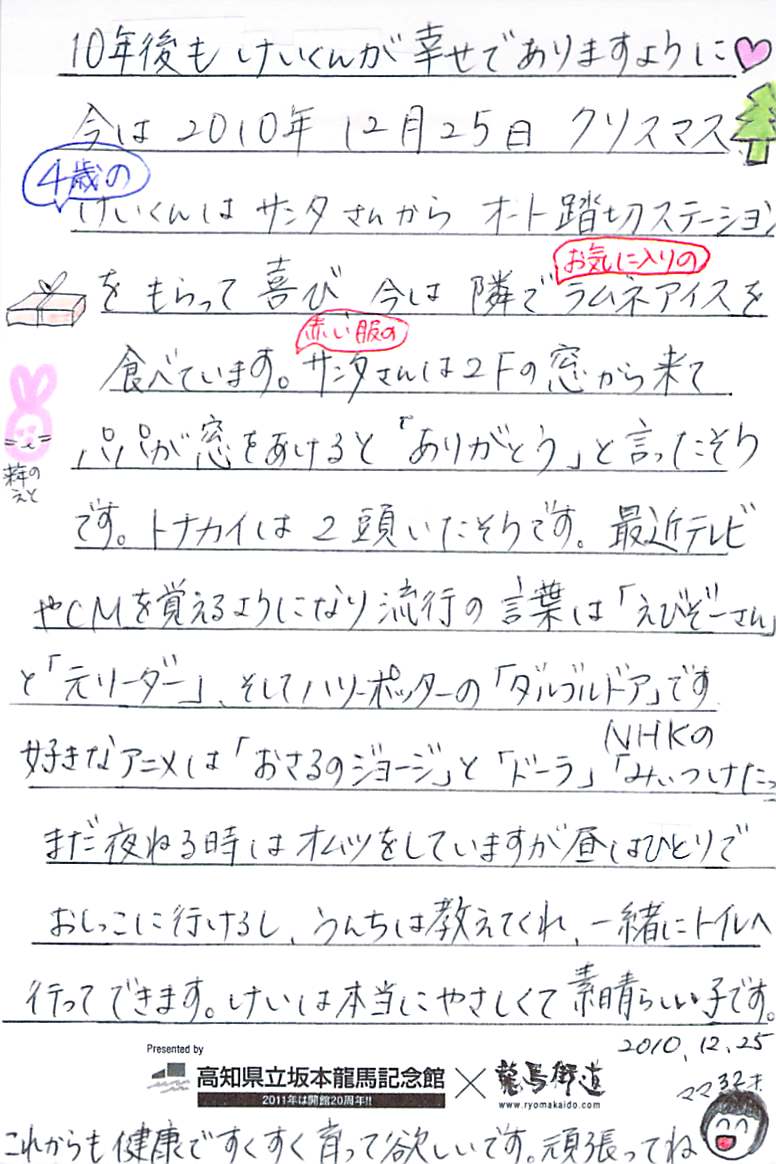 10年後もけいくんが幸せでありますように
今は2010年12月25日 クリスマス
4歳の
けいくんはサンタさんから オート踏切ステーション
お気に入りの
をもらって喜び 今は 隣でラムネアイスを
赤い服の
食べています。サンタさんは2Fの窓から来て
パパが窓をあけると「ありがとう」と言ったそう
来年の
えと
です。トナカイは2頭いたそうです。最近テレビ
やCMを覚えるようになり流行の言葉は「えびぞーさん」
と「元リーダー」、そしてハリーポッターの「ダルブルドア」です
NHKの
好きなアニメは「おさるのジョージ」と「ドーラ」「みぃつけたっ
まだ夜ねる時はオムツをしていますが昼はひとりで
おしっこに行けるし、うんちは教えてくれ、一緒にトイレへ
行ってできます。けいは本当にやさしくて素晴らしい子です。
2010.12.25
Presented by
高知県立坂本龍馬記念館 × 龍馬街道
2011年は開館20周年!! www.ryomakaido.com
ママ32才
これからも健康ですくすく育って欲しいです。頑張ってね